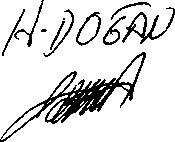 H-DOĞAN